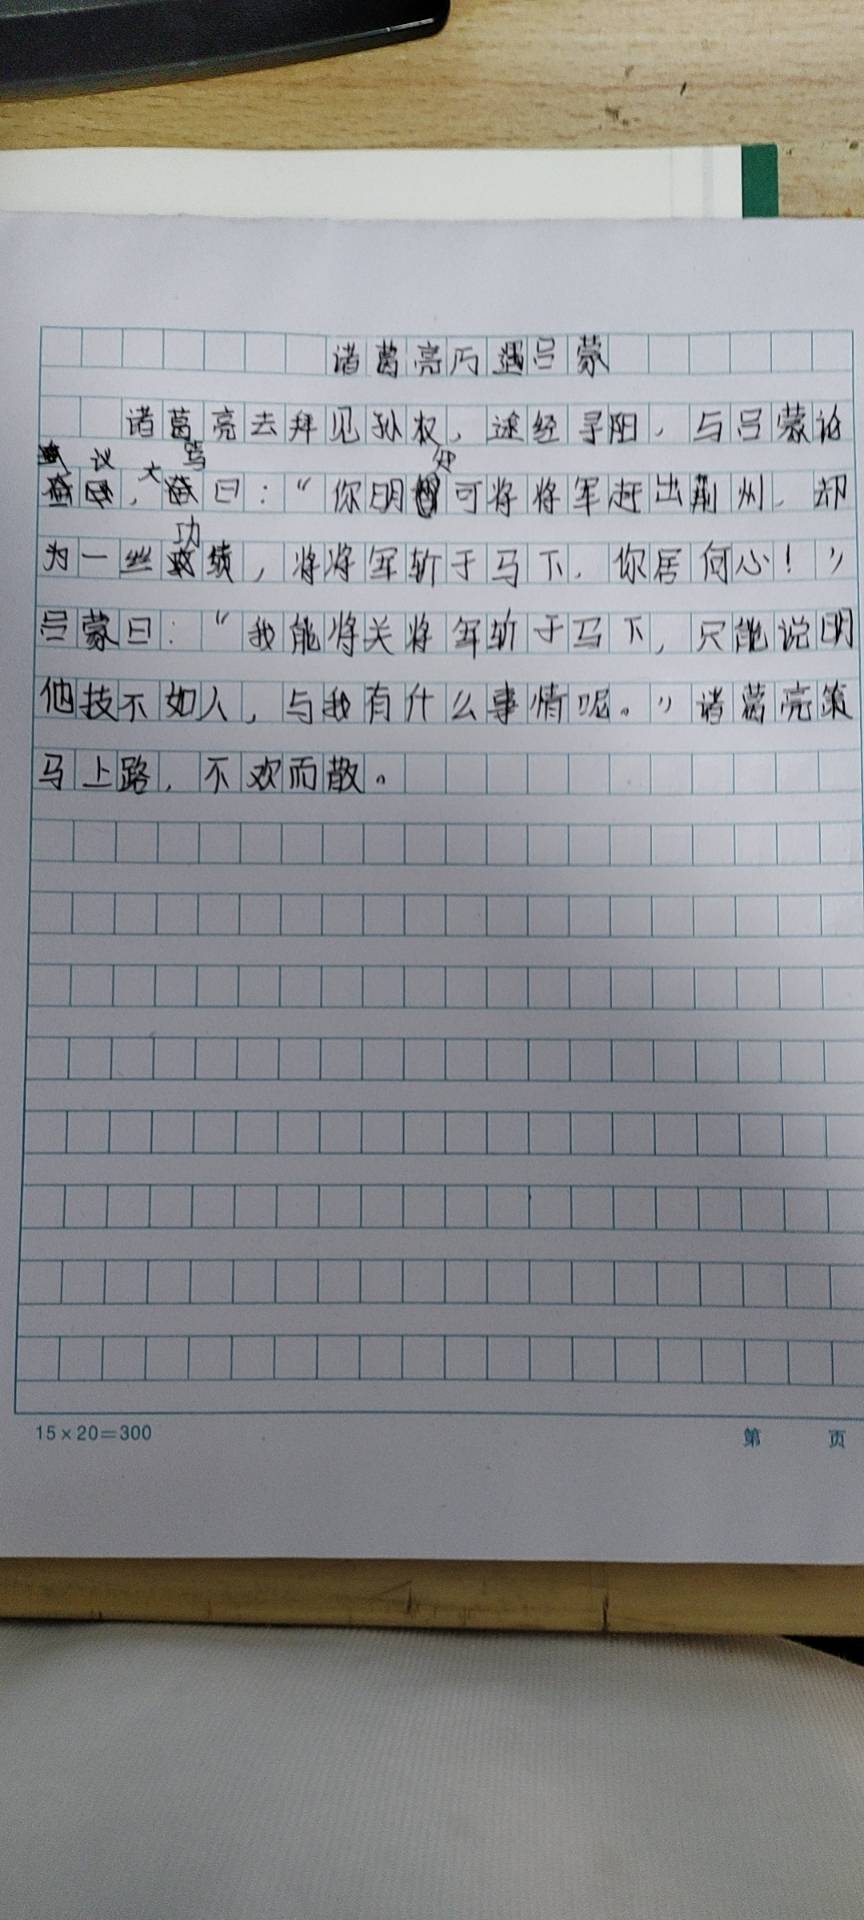 诸葛亮巧遇吕蒙
诸葛亮去拜见孙权，途经寻阳，与吕蒙论
议，大骂曰：“你明知可将将军赶出荆州，却
为一丝功绩，将将军斩于马下，你居何心！”
吕蒙曰：“我能将关将军斩于马下，只能说明
他技不如人，与我有什么事情呢。”诸葛亮策
马上路，不欢而散。
15×20=300
第 页